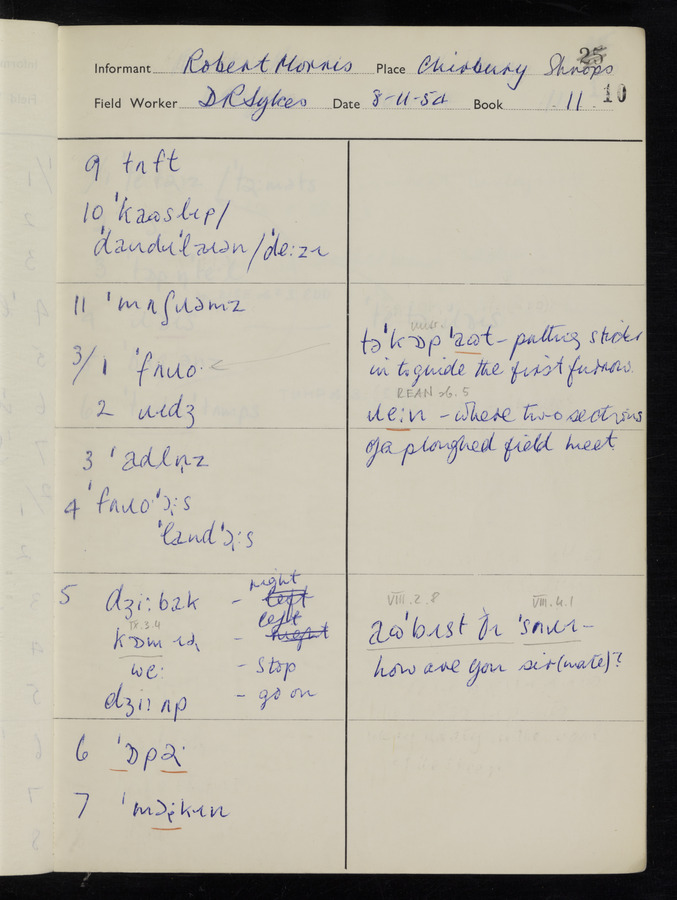 25
Informant Robert Morris Place Chirbury Shrops
Field Worker D R Sykes Date 8-11-54 Book 11 10
9 tʌft
10 ˈkaʊslɪp/
ˈdandɪˈlaɪən/ˈdeːzɪ
11 ˈmʌʃɹəmz
3/1 ˈfʌɹoˑ <
2 ɹɪdʒ
3 ˈadlṇz
4 ˈfʌɹoˑˈɔːs
ˈlandˈɔːs
5 dʒiːbak - right left
IX.3.4
- left right
weː - stop
dʒiːʌp - go on
6 ˈɒpəˑ
7
təˈkɒpˈaʊt - putting sticks
in to guide the first furrow.
REAN >6.5
ɹeːn - where two sections
of a ploughed field meet
VIII.2.8 VIII.4.1
aʊˈbɪst ðɪ ˈsʌɹɪ -
how are you sir (mate)?